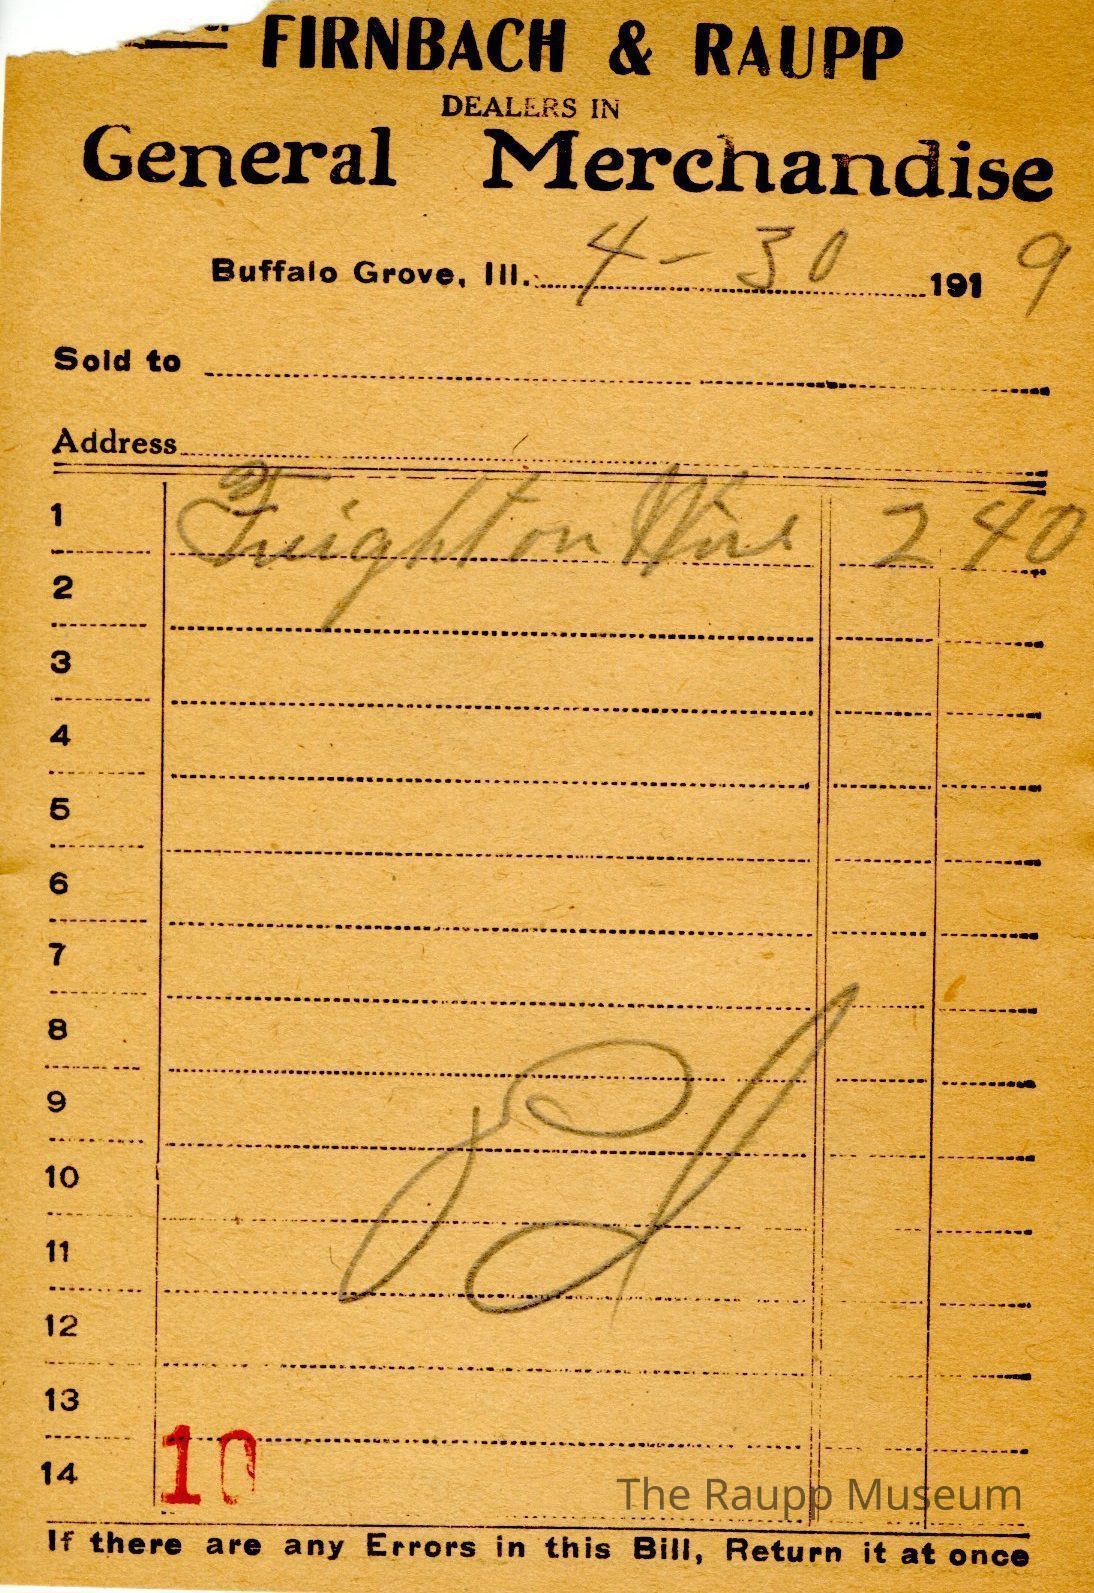 FIRNBACH & RAUPP
DEALERS IN
General Merchandise
Buffalo Grove, Ill. 4-30 1919
Sold to
Address
1 Freight on Wire 2 40
2
3
4
5
6
7
8
9
10
11
12
13
14
10
The Raupp Museum
If there are any Errors in this Bill, Return it at once